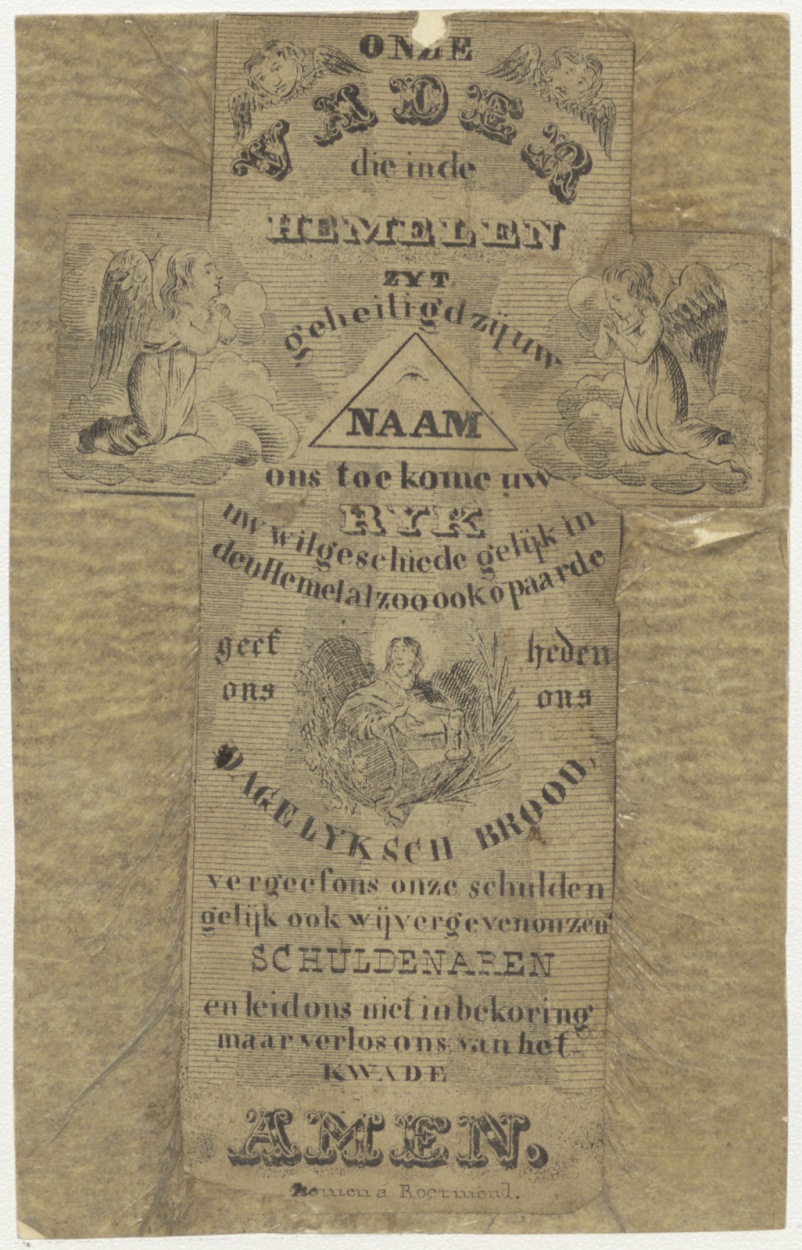 ONZE
VADER
die in de
HEMELEN
ZYT
geheiligd zij uw
NAAM
ons toe kome uw
RYK
uw wil geschiede gelijk in
den Hemel alzoo ook op aarde
geef heden
ons ons
DAGELYKSCH BROOD,
vergeef ons onze schulden
gelijk ook wij vergeven onzen
SCHULDENAREN
en leid ons niet in bekoring
maar verlos ons van het
KWADE
AMEN.
Romen á Roermond.